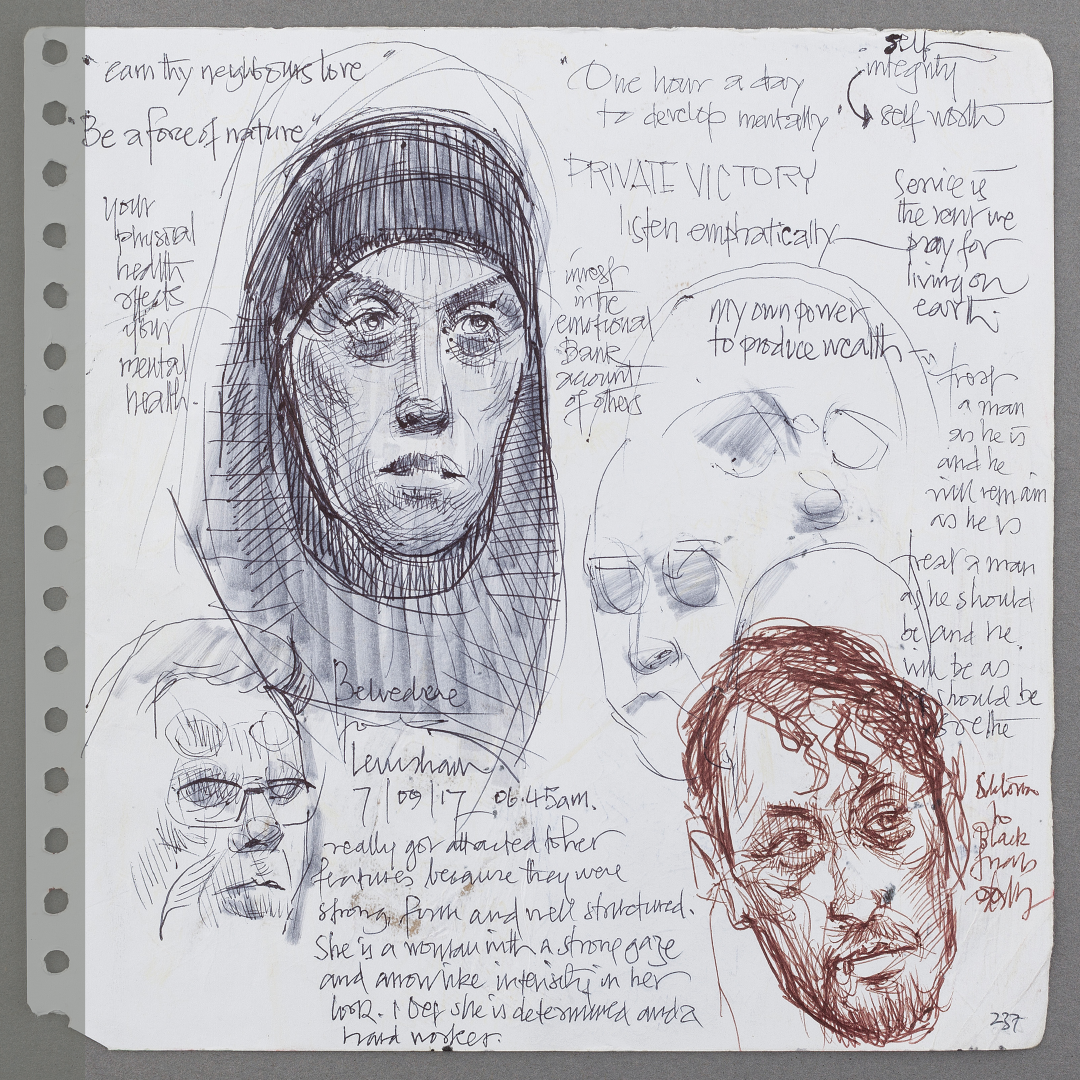 "earn thy neighbours love"
"Be a force of nature"
your
physical
health
affects
your
mental
health.
"One hour a day
to develop mentally"
self
integrity
self worth
PRIVATE VICTORY
listen emphatically
Service is
the rent we
pray for
living on
earth.
invest
in the
emotional
Bank
account
of others
My own power
to produce wealth
treat
a man
as he is
and he
will remain
as he is
treat a man
as he should
be and he
will be as
he should be
Belvedere
to
Lewisham
7/09/17 06.45am.
really got attracted to her
features because they were
strong, firm and well structured.
She is a woman with a strong gaze
and arrowlike intensity in her
look. I bet she is determined and a
hard worker.
to
Black
237